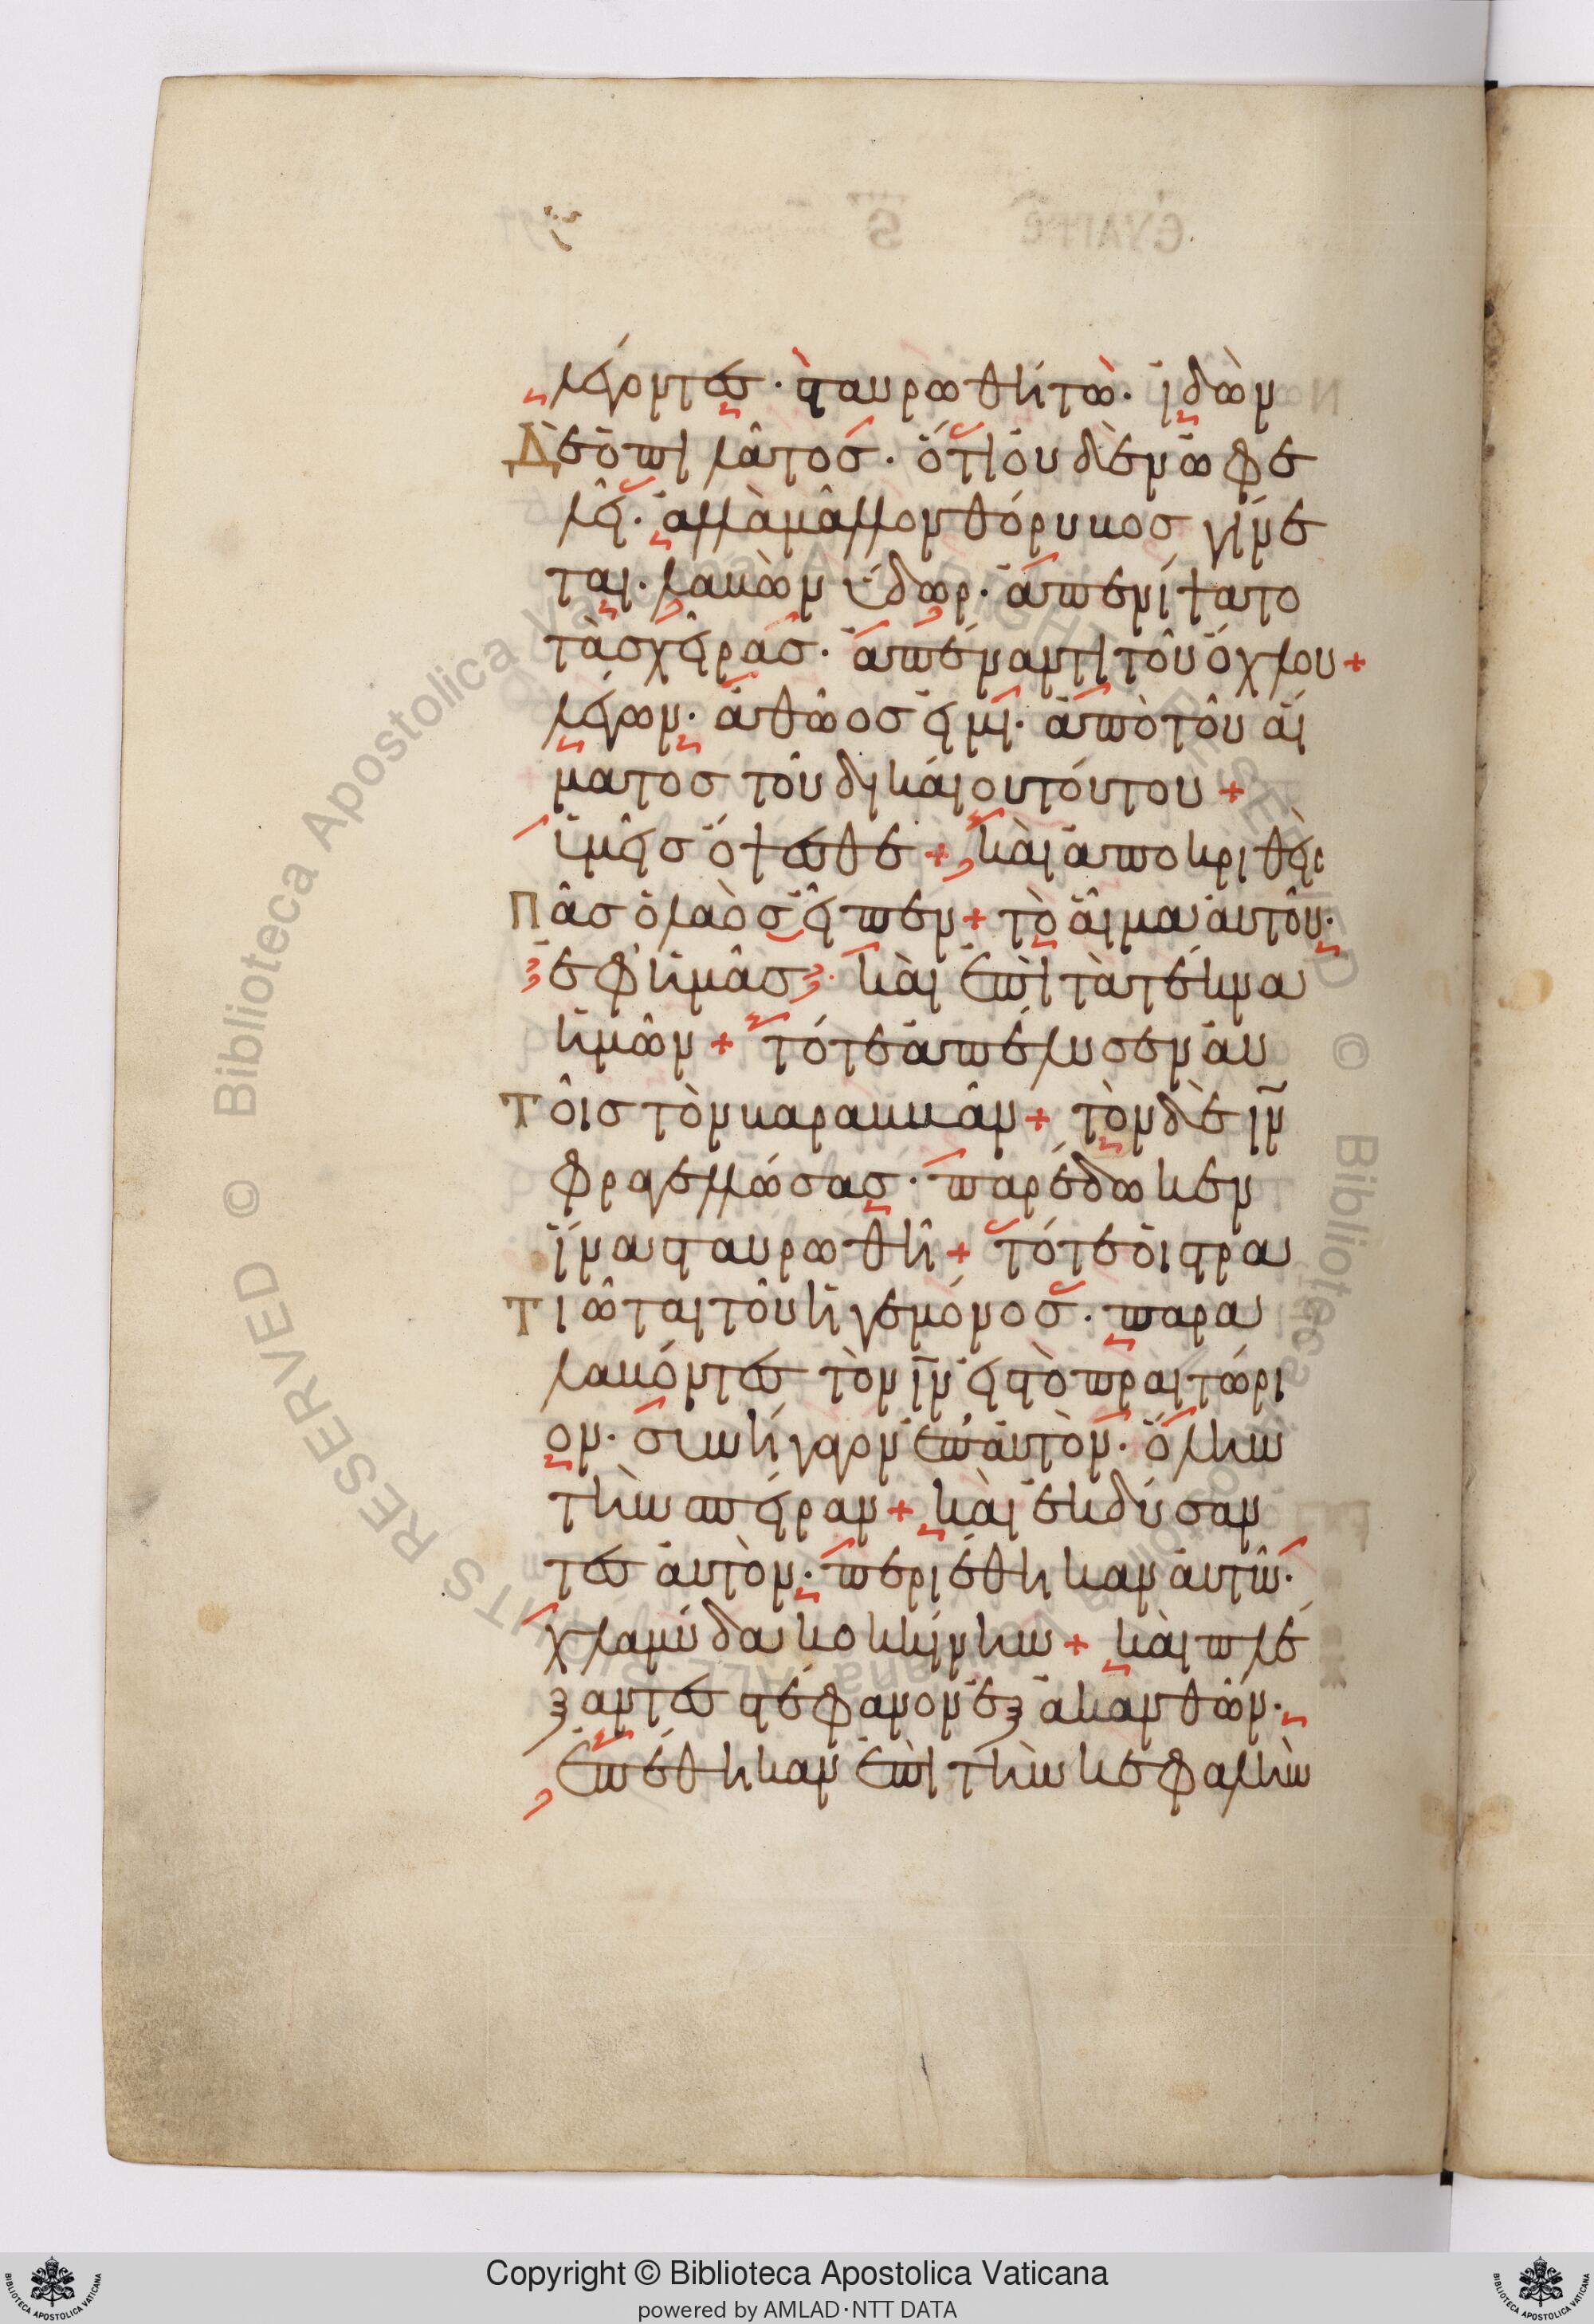 λέγοντες· σταυρωθήτω· ἰδὼν
Δὲ ὁ πιλᾶτος· ὅτι οὐδὲν ὠφε
λεῖ· ἀλλὰ μᾶλλον θόρυβος γίνε
ται· λαβὼν ὕδωρ· ἀπενίψατο
τὰς χεῖρας· ἀπέναντι τοῦ ὄχλου+
λέγων· ἀθῶος εἰμι· ἀπὸ τοῦ αἵ
ματος τοῦ δικαίου τούτου+
ὑμεῖς ὄψεσθε+ καὶ ἀποκριθεὶς
Πᾶς ὁ λαὸς εἶπεν+ τὸ αἷμα αὐτοῦ·
ἐφ' ἡμᾶς· καὶ ἐπὶ τὰ τέκνα
ἡμῶν+ τότε ἀπέλυσεν αὐ
Τοῖς τὸν βαραββᾶν+ τὸν δὲ ιν̅
φραγελλώσας· παρέδωκεν
ἵνα σταυρωθῆ+ τότε οἱ στρα
Τιῶται τοῦ ἡγεμόνος· παρα
λαβόντες τὸν ιν̅ εἰς τὸ πραιτώρι
ον· συνήγαγον ἐπ' αὐτὸν· ὅλην
τὴν σπεῖραν+ καὶ ἐκδύσαν
τες αὐτὸν· περιέθηκαν αὐτῶ·
χλαμύδα κοκκίνην+ καὶ πλέ
ξαντες στέφανον ἐξ ἀκανθῶν·
ἐπέθηκαν ἐπὶ τὴν κεφαλὴν
Copyright © Biblioteca Apostolica Vaticana
powered by AMLAD·NTT DATA